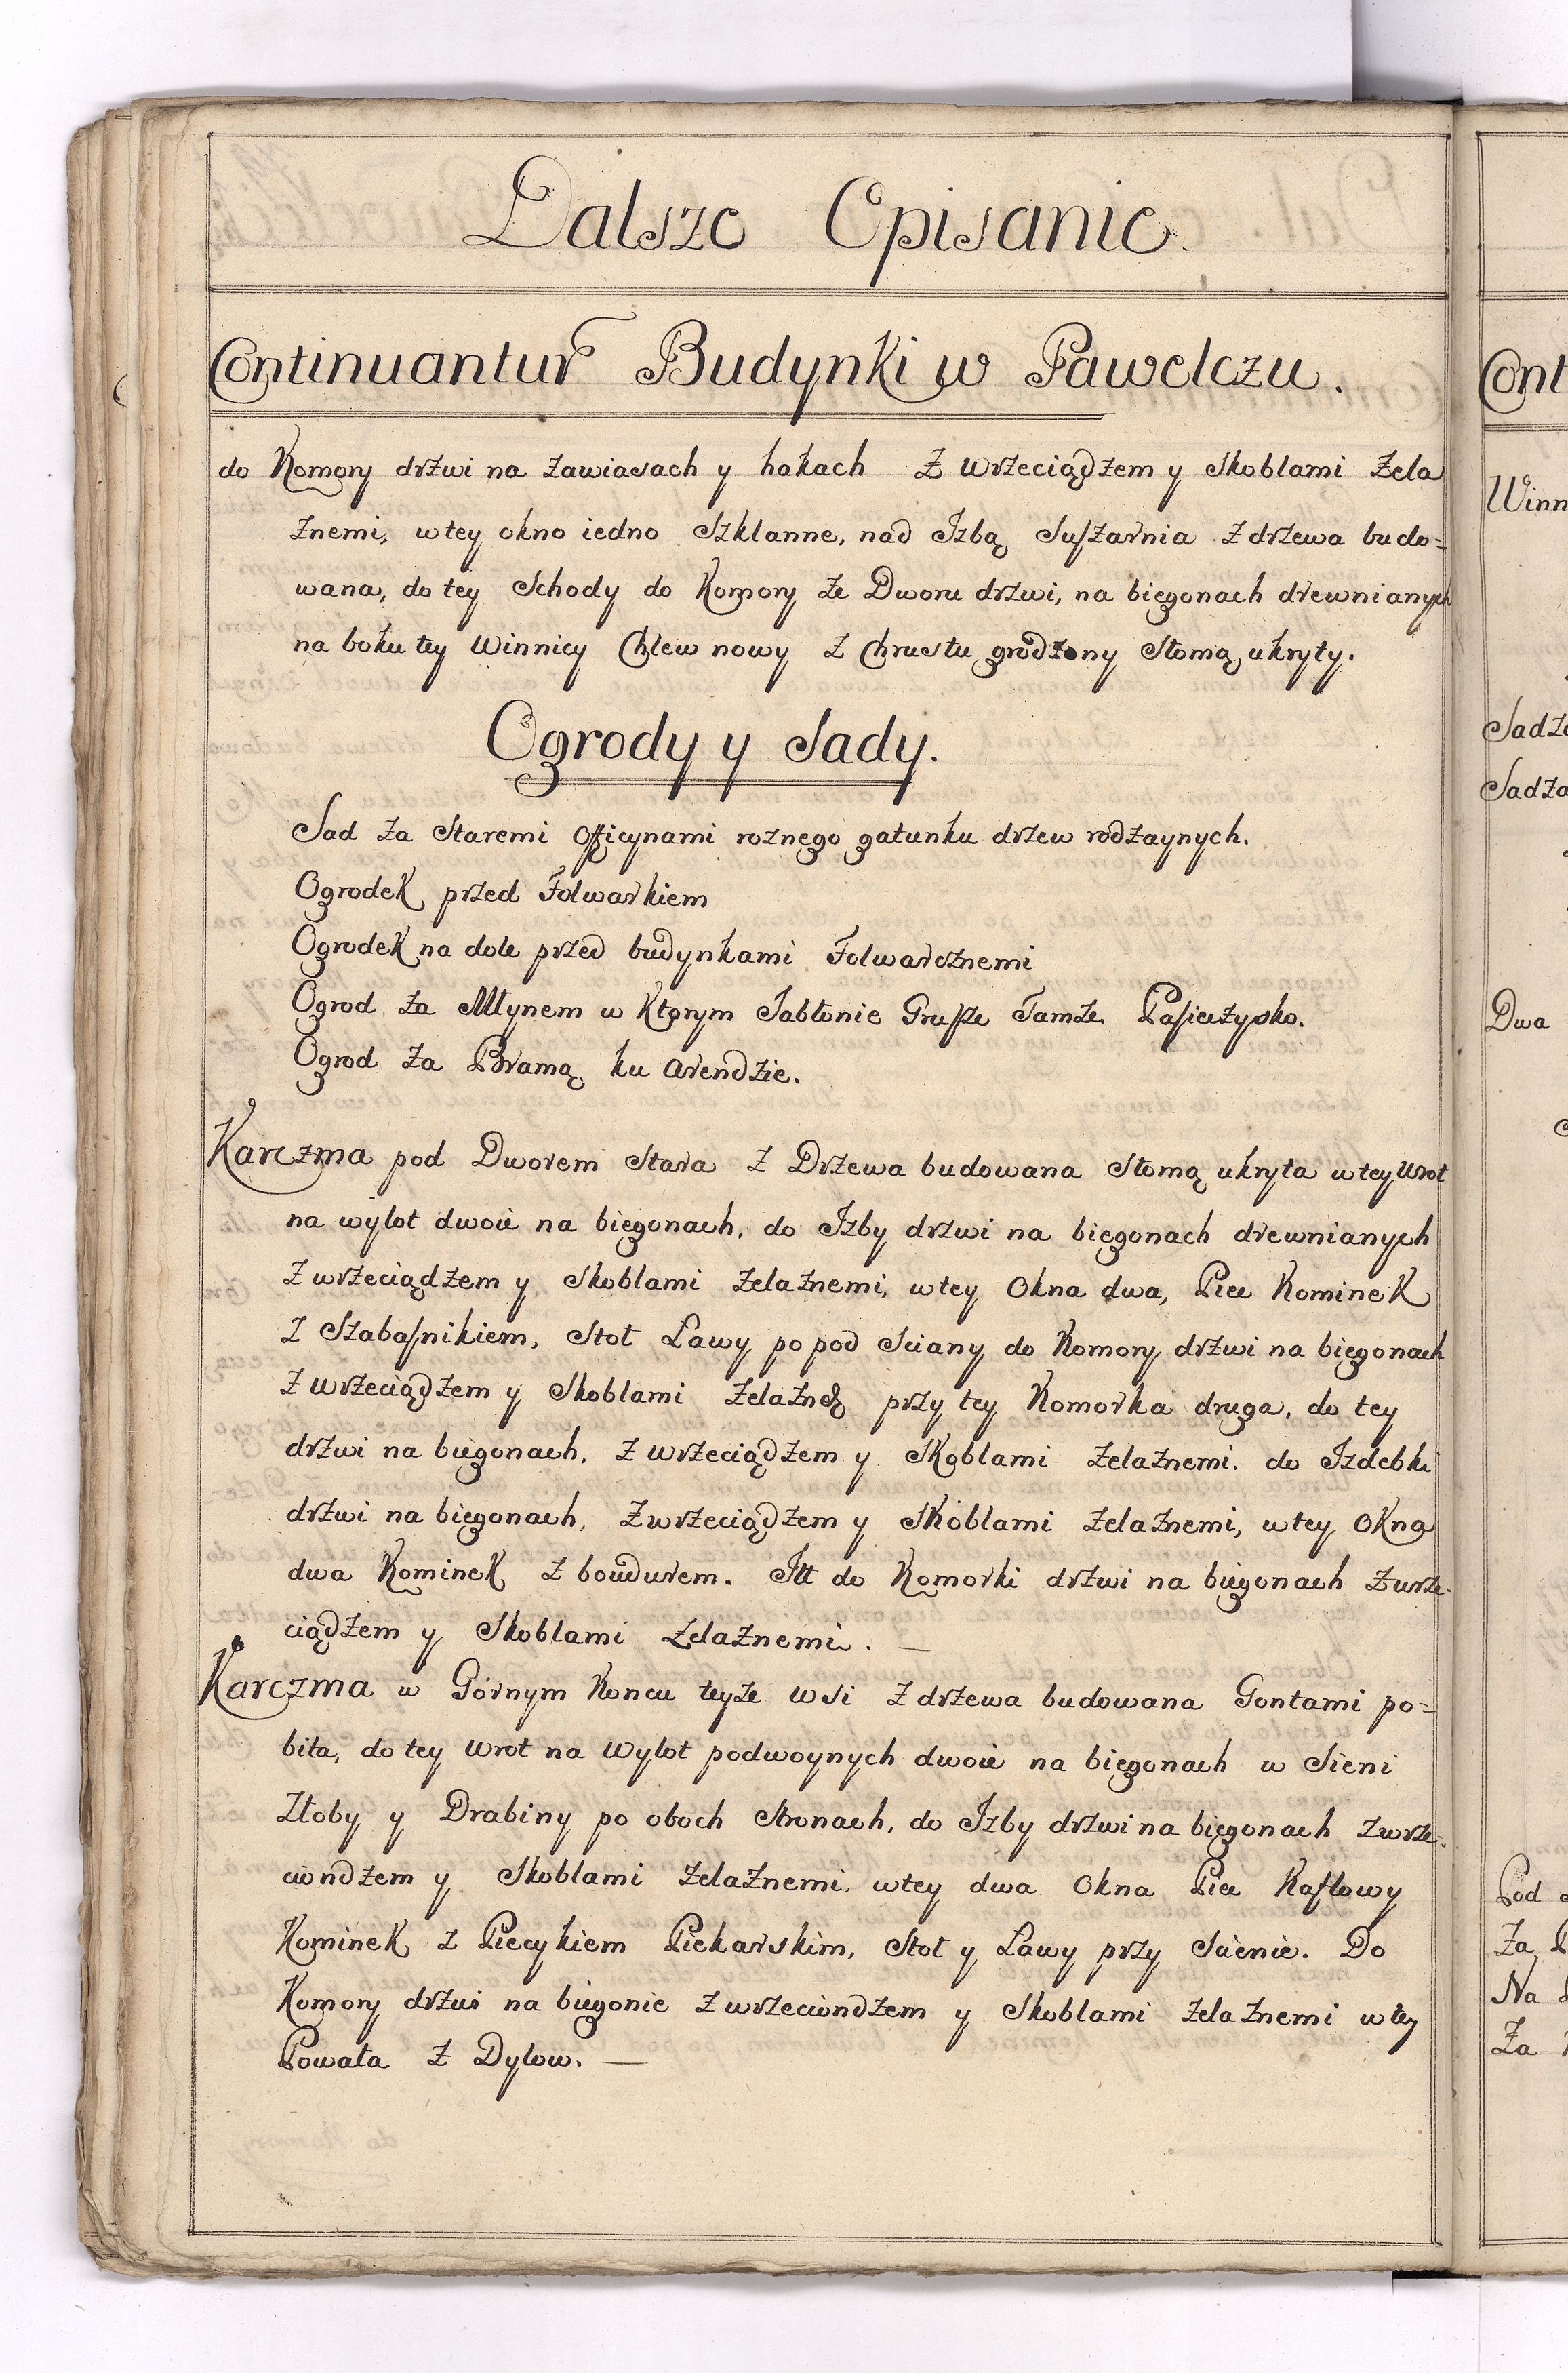 Dalsze Opisanie.
Continuantur Budynki w Pawelczu.
do Komory drzwi na zawiasach y hakach z wrzeciądzem y skoblami żela
znemi, w tey okno iedno szklanne, nad Izbą suszarnia z drzewa budo=
wana, do tey schody do Komory ze Dworu drzwi, na biegonach drewnianych
na boku tey Winnicy Chlew nowy z Chrustu grodzony słomą ukryty.
Ogrody y Sady.
Sad za Staremi Officynami roznego gatunku drzew rodzaynych.
Ogrodek przed Folwarkiem
Ogrodek na dole przed budynkami Folwarcznemi
Ogrod za Młynem w Ktorym Jabłonie Grusze Tamże Pasieczysko.
Ogrod za Bramą ku Arendzie.
Karczma pod Dworem Stara z Drzewa budowana Słomą ukryta w tey Wrot
na wylot dwoie na biegonach, do Izby drzwi na biegonach drewnianych
z wrzeciądzem y Skoblami żelaznemi, w tey Okna dwa, Piec Kominek
z Szabaśnikiem, Stoł Ławy po pod Sciany do Komory drzwi na biegonach
z wrzeciądzem y Skoblami żelazne przy tey Komorka druga, do tey
drzwi na biegonach, z wrzeciądzem y Skoblami żelaznemi. do Izdebki
drzwi na biegonach, z wrzeciądzem y Skoblami żelaznemi, w tey Okna
dwa Kominek z boudurem. Itt do Komorki drzwi na biegonach z wrze-
ciądzem y Skoblami żelaznemi. —
Karczma w Górnym Koncu teyże Wsi z drzewa budowana Gontami po=
bita, do tey Wrot na Wylot podwoynych dwoie na biegonach w Sieni
Złoby y Drabiny po oboch Stronach, do Izby drzwi na biegonach z wrze-
ciondzem y Skoblami żelaznemi, w tey dwa Okna Piec Kaflowy
Kominek z Piecykiem Piekarskim, Stoł y Ławy przy Scienie. Do
Komory drzwi na biegonie z wrzeciondzem y Skoblami żelaznemi w tey
Powała z Dylow. —
Cont
Winn
Sadz
Sadza
Dwa
Pod
Za
Na
Za